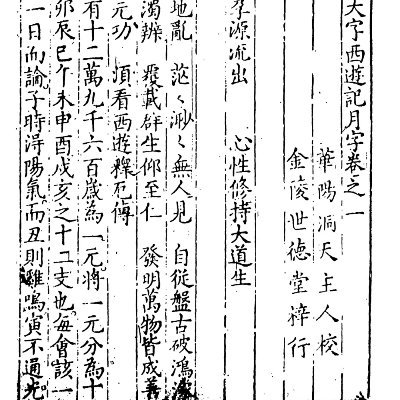 大字西遊記月字卷之一
華陽洞天主人校
金陵世德堂梓行
孕源流出　心性修持大道生
地亂　茫〻渺〻無人見　自從盤古破鴻濛
濁辨　覆載群生仰至仁　發明萬物皆成善
元功　湏看西遊釋厄傳
有十二萬九千六百歲為一元將一元分為十
卯辰巳午未申酉戌亥之十二支也每會該一
一日而論子時得陽氣而丑則雞鳴寅不通光